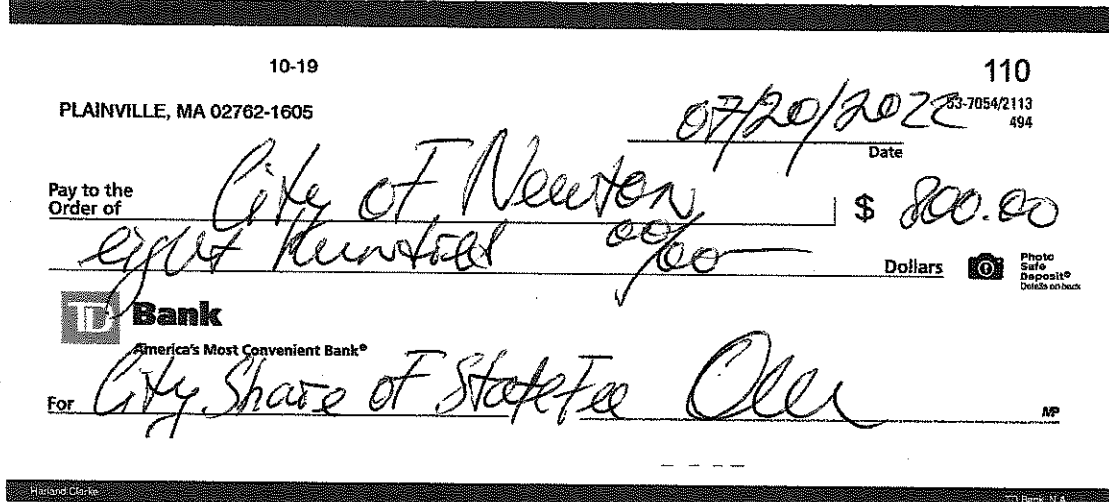 10-19
110
PLAINVILLE, MA 02762-1605
07/20/2022
53-7054/2113
494
Date
Pay to the
Order of
City of Newton
$ 800.00
eight Hundred 00/00
Dollars
Photo
Safe
Deposit®
Details on back
TD Bank
America's Most Convenient Bank®
For City Share of State Fee
MP
Harland Clarke
TD Bank, N.A.